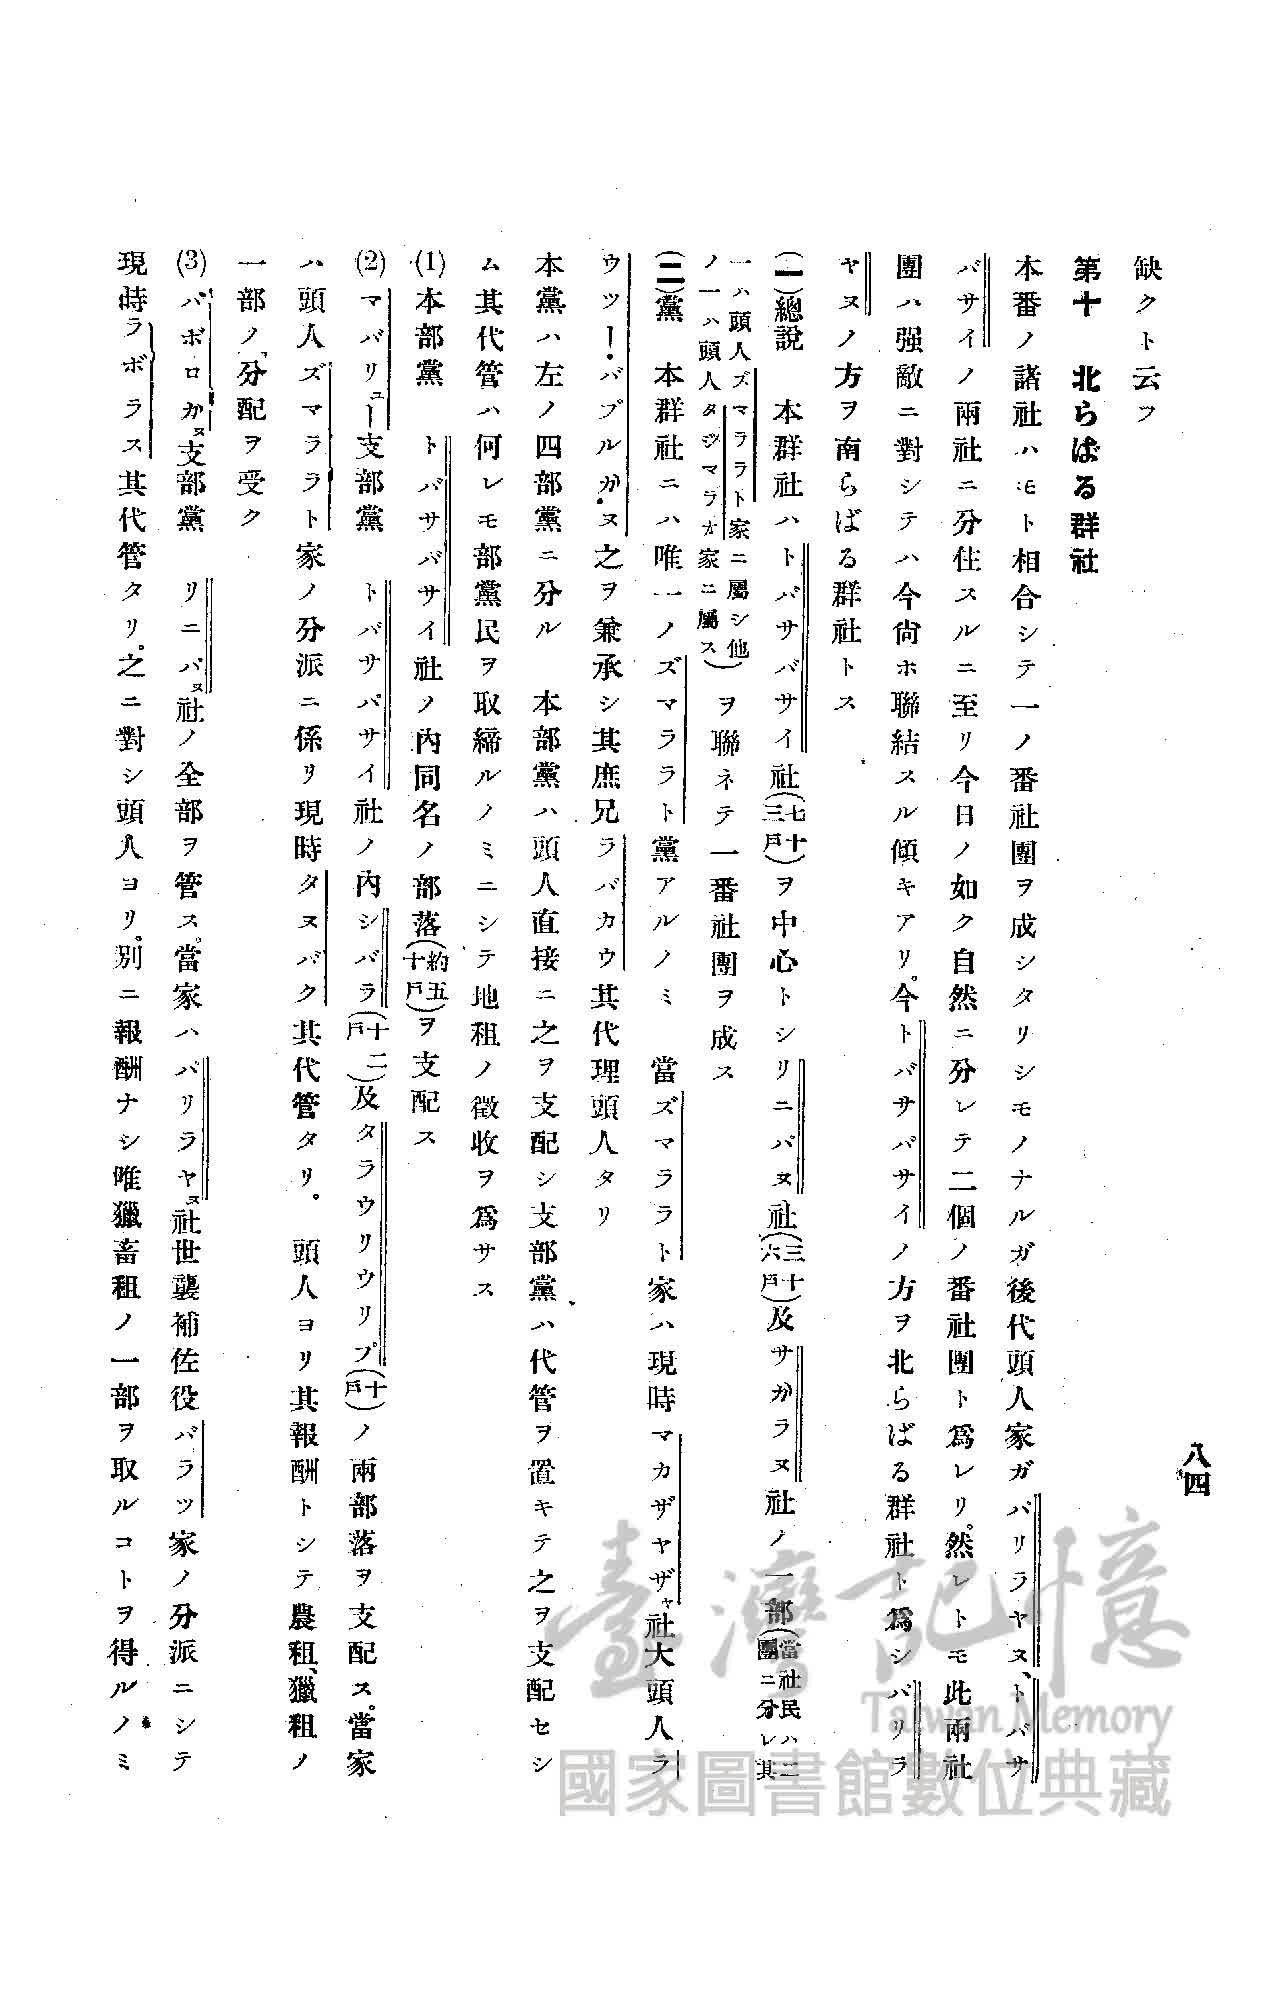 八四
缺クト云フ
第十　北らばる群社
本番ノ諸社ハモト相合シテ一ノ番社團ヲ成シタリシモノナルガ後代頭人家ガバリラヤヌ、トバサ
バサイノ兩社ニ分住スルニ至リ今日ノ如ク自然ニ分レテ二個ノ番社團ト爲レリ。然レトモ此兩社
團ハ强敵ニ對シテハ今尙ホ聯結スル傾キアリ。今トバサバサイノ方ヲ北らばる群社ト爲シバリラ
ヤヌノ方ヲ南らばる群社トス
(一)總說　本群社ハトバサバサイ社(七十三戶)ヲ中心トシリニバヌ社(三十六戶)及サガラヌ社ノ一部(當社民ハ二團ニ分レ其
一ハ頭人ズマララト家ニ屬シ他ノ一ハ頭人タジマラオ家ニ屬ス)ヲ聯ネテ一番社團ヲ成ス
(二)黨　本群社ニハ唯一ノズマララト黨アルノミ　當ズマララト家ハ現時マカザヤザヤ社大頭人ラ
ウツー・バブルガ・ヌ之ヲ兼承シ其庶兄ラバカウ其代理頭人タリ
本黨ハ左ノ四部黨ニ分ル　本部黨ハ頭人直接ニ之ヲ支配シ支部黨ハ代管ヲ置キテ之ヲ支配セシ
ム其代管ハ何レモ部黨民ヲ取締ルノミニシテ地租ノ徵收ヲ爲サス
(1)本部黨　トバサバサイ社ノ內同名ノ部落(約五十戶)ヲ支配ス
(2)マバリユー支部黨　トバサバサイ社ノ內シバラ(十二戶)及タラウリウリプ(十戶)ノ兩部落ヲ支配ス。當家
ハ頭人ズマララト家ノ分派ニ係リ現時タヌバク其代管タリ。　頭人ヨリ其報酬トシテ農租、獵租ノ
一部ノ分配ヲ受ク
(3)バボロガヌ支部黨　リニバヌ社ノ全部ヲ管ス。當家ハバリラヤヌ社世襲補佐役バラツ家ノ分派ニシテ
現時ラボラス其代管タリ。之ニ對シ頭人ヨリ。別ニ報酬ナシ唯獵畜租ノ一部ヲ取ルコトヲ得ルノミ
臺灣記憶
Taiwan Memory
國家圖書館數位典藏